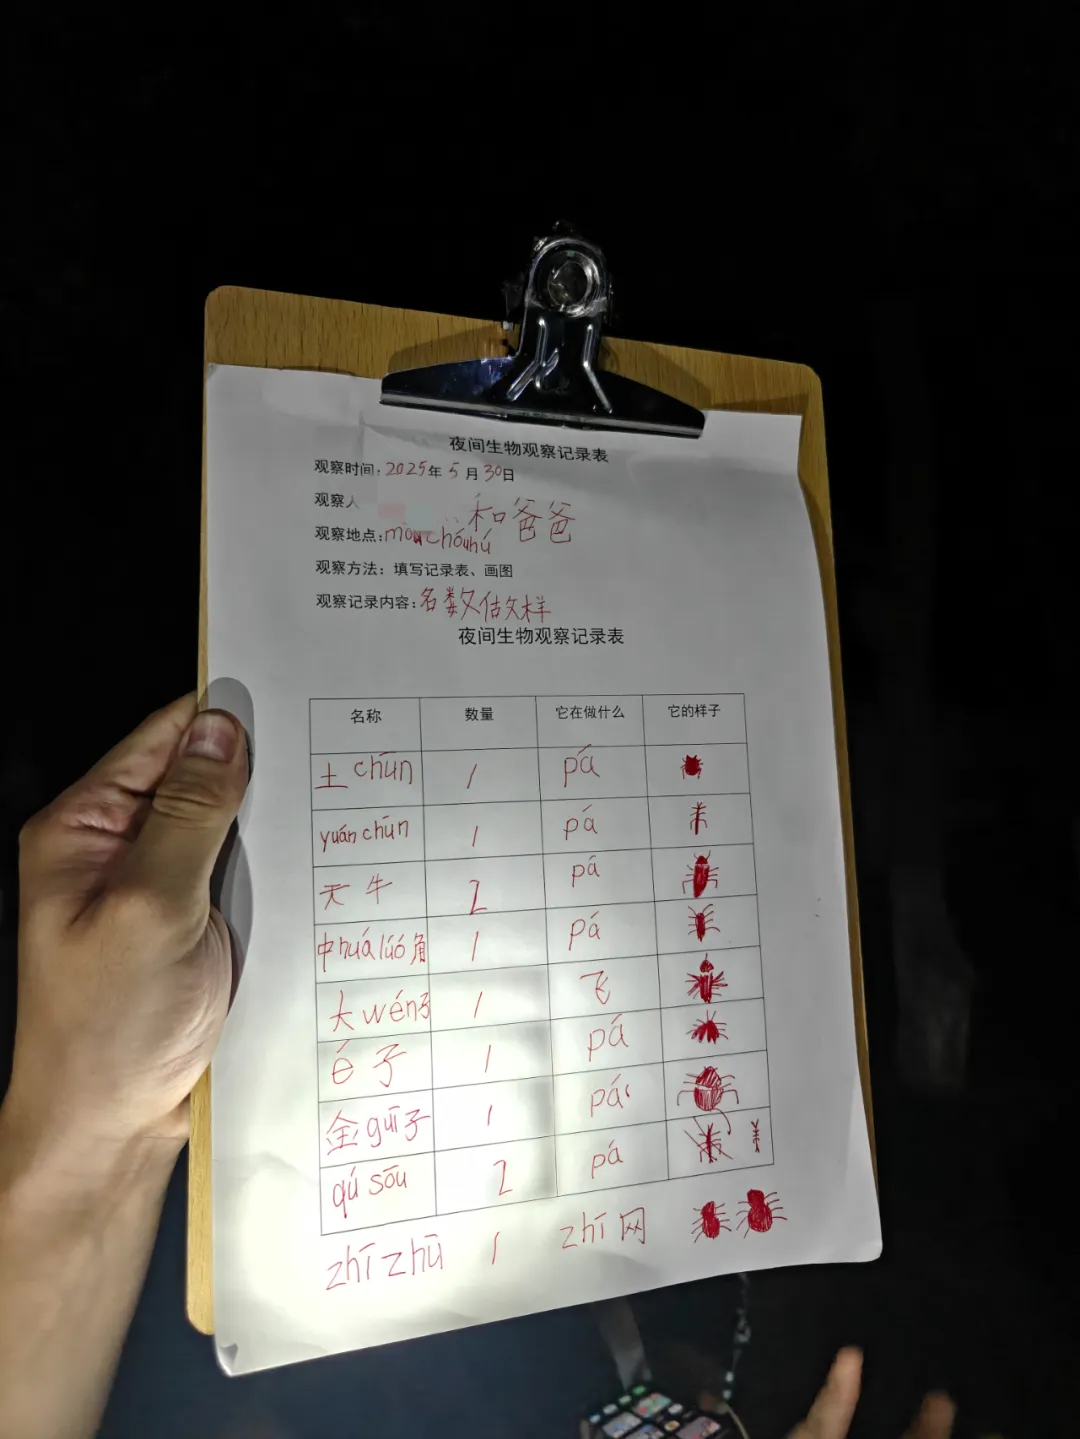 夜间生物观察记录表
观察时间：2025年 5 月 30日
观察人 和爸爸
观察地点：mòuchóuhú
观察方法：填写记录表、画图
观察记录内容：名数估文样
夜间生物观察记录表
名称 数量 它在做什么 它的样子
土chūn 1 pá
yuán chūn 1 pá
天牛 2 pá
中huá lúó角 1 pá
大wén子 1 飞
é子 1 pá
金guī子 1 pá
qú sōu 2 pá
zhī zhū 1 zhī网